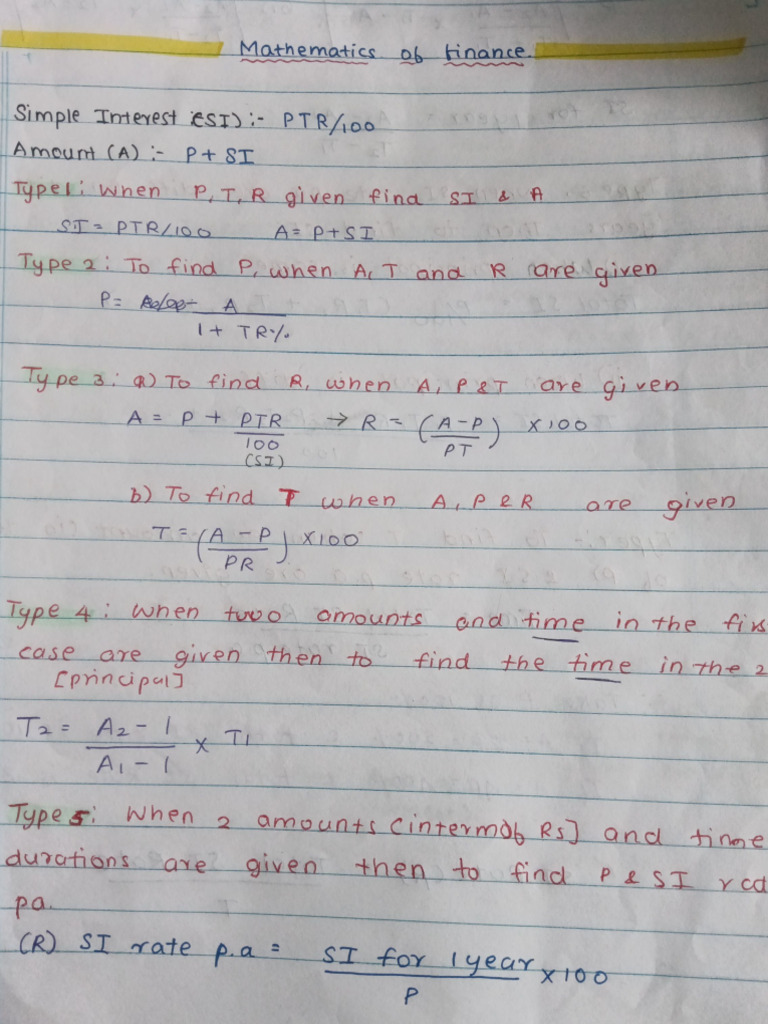 Mathematics of finance.
Simple Interest (SI) :- PTR/100
Amount (A) :- P + SI
Type 1: When P, T, R given find SI & A
SI = PTR/100 A = P + SI
Type 2: To find P, when A, T and R are given
P = A / 1 + TR%
Type 3: a) To find R, when A, P & T are given
A = P + PTR/100 (SI) → R = (A - P / PT) × 100
b) To find T when A, P & R are given
T = (A - P / PR) × 100
Type 4: When two amounts and time in the firs
case are given then to find the time in the 2
[principal]
T2 = A2 - 1 / A1 - 1 × T1
Type 5: When 2 amounts (interm of Rs] and time
durations are given then to find P & SI rat
pa.
(R) SI rate p.a = SI for 1 year / P × 100